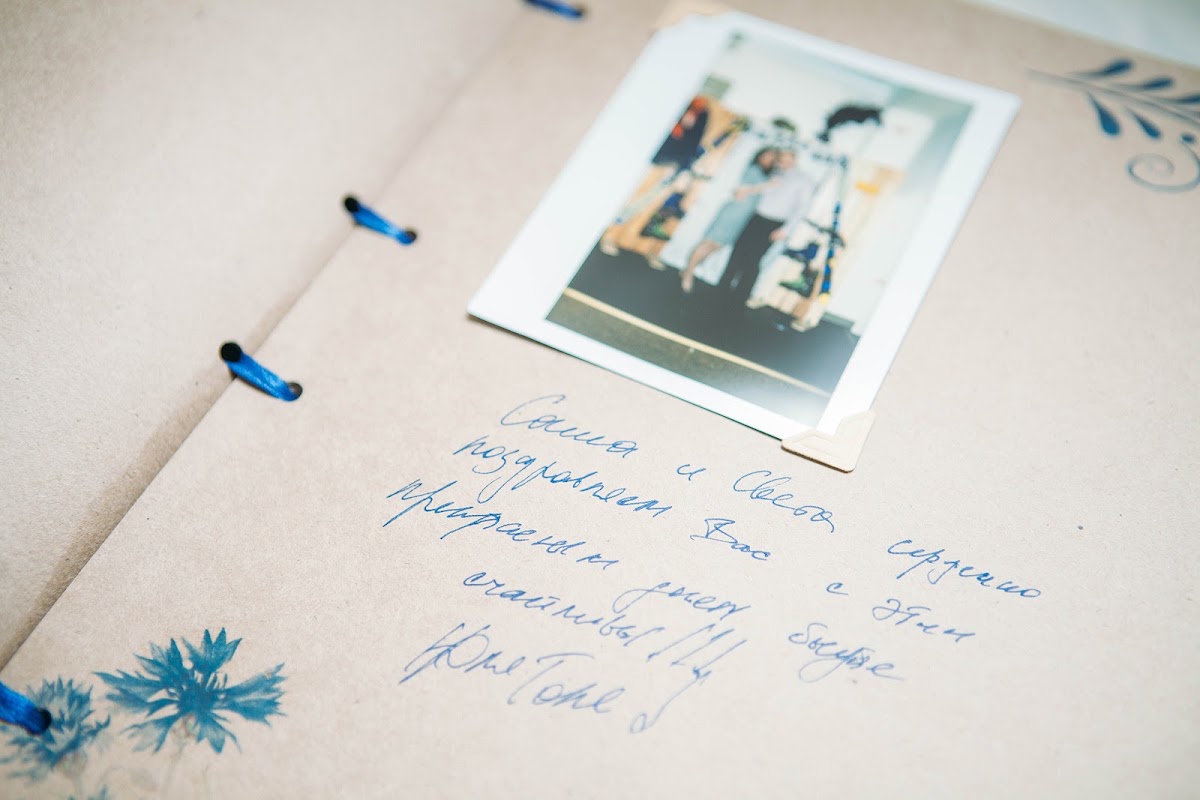 Саша и Света сердечно
поздравляем Вас с этим
прекрасным днем будьте
счастливы!!!